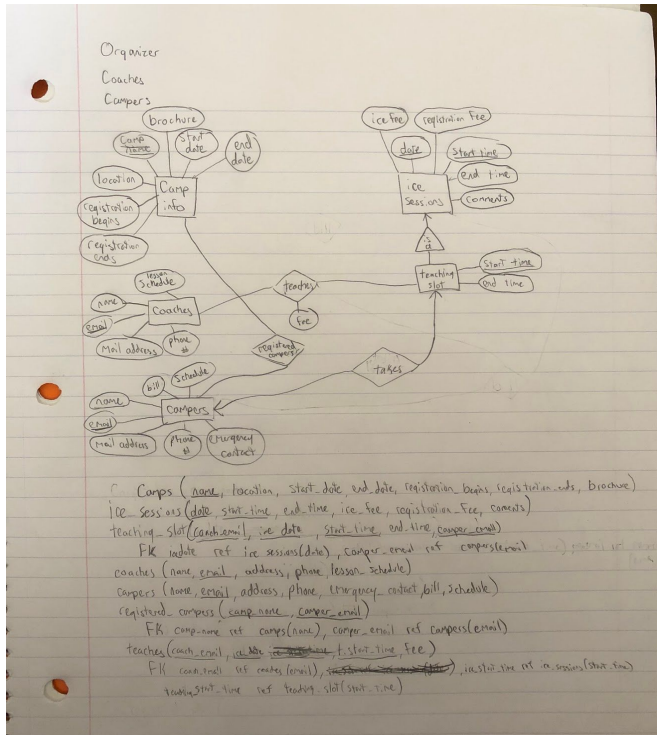 Organizer
Coaches
Campers
brochure
Camp name
start date
end date
location
registration begins
registration ends
Camp info
ice fee
registration fee
date
start time
end time
comments
ice sessions
is a
teaching slot
start time
end time
teaches
fee
lesson schedule
name
email
Mail address
phone #
Coaches
registered campers
takes
bill
Schedule
name
email
Mail address
phone #
emergency contact
Campers
Camps (name, location, start_date, end_date, registration_begins, registration_ends, brochure)
ice_sessions (date, start_time, end_time, ice_fee, registration_fee, coments)
teaching_slot (coach_email, ice date, start_time, end_time, camper_email)
FK ref ice sessions(date), camper_email ref campers(email
coaches (name, email, address, phone, lesson_schedule)
campers (name, email, address, phone, emergency_contact, bill, schedule)
registered_campers (camp_name, camper_email)
FK camp_name ref camps(name), camper_email ref campers(email)
teaches (coach_email, t_start_time, fee)
FK coach_email ref coaches (email), ice_start_time ref ice_sessions (start_time)
start_time ref teaching_slot (start_time)